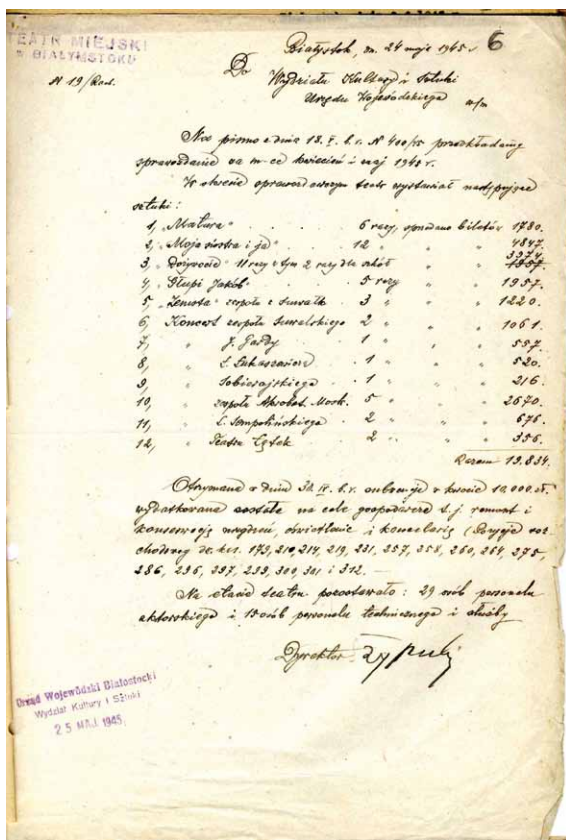 TEATR MIEJSKI
w BIAŁYMSTOKU
Białystok, dn. 24 maja 1945 r. 6
N 19/
Do
Wydziału Kultury i Sztuki
Urzędu Wojewódzkiego w/m
Na pismo z dnia 18.V. b.r. N 400/45 przedkładamy
sprawozdanie za m-ce kwiecień i maj 1945 r.
W okresie sprawozdawczym teatr wystawiał następujące
sztuki:
1, „Matura" 6 razy, sprzedano biletów 1780.
2, „Moja siostra i ja" 12 " " " 4847.
3, „Dożywocie" 11 razy z tym 2 razy dla szkół " " 3374.
4, „Głupi Jakób" 5 razy " " 1957.
5, „Zemsta" zespołu z Suwałk 3 " " " 1220.
6, Koncert zespołu Suwalskiego 2 " " " 1061.
7, " J. Gardy 1 " " " 557.
8, " Ł. Łukaszewicz 1 " " " 520.
9, " Sobierajskiego 1 " " " 216.
10, " zespołu Absolwt. Mosk. 5 " " " 2670.
11, " L. Sempolińskiego 2 " " " 676.
12, " Teatru Cętek 2 " " " 356.
Razem 19.834.
Otrzymana w dniu 30.IV. b.r. subwencja w kwocie 10.000 zł.
wydatkowana została na cele gospodarcze t.j. remont i
konserwację urządzeń, oświetlanie i kancelarię (Pozycje roz-
chodowe 193, 210, 214, 219, 231, 257, 258, 260, 264, 275,
286, 296, 297, 299, 300, 301 i 312. —
Na etacie teatru pozostawało: 29 osób personelu
aktorskiego i 15 osób personelu technicznego i służby
Dyrektor
Urząd Wojewódzki Białostocki
Wydział Kultury i Sztuki
25 MAJ 1945